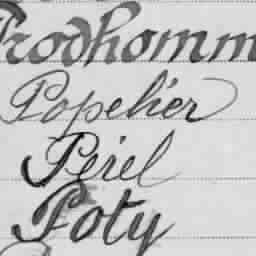 Prodhomm
Popelier
Périel
Poty